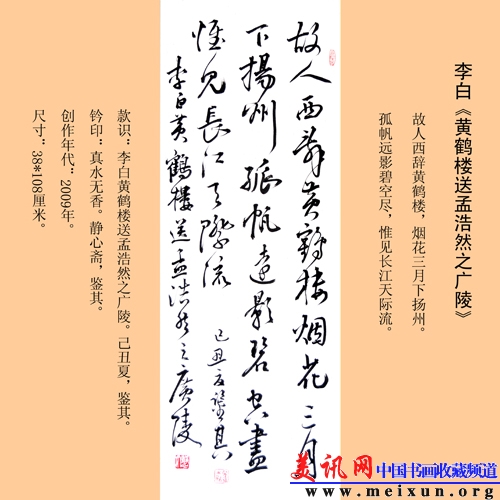 李白《黄鹤楼送孟浩然之广陵》
故人西辞黄鹤楼，烟花三月下扬州。
孤帆远影碧空尽，惟见长江天际流。
故人西辞黄鹤楼烟花三月
下揚州孤帆遠影碧空盡
惟见長江天際流
李白黄鶴楼送孟浩然之廣陵
己丑夏鑒其
款识：李白黄鹤楼送孟浩然之广陵。己丑夏，鉴其。
钤印：真水无香。静心斋，鉴其。
创作年代：2009年。
尺寸：38*108厘米。
美讯网 中国书画收藏频道
www.meixun.org